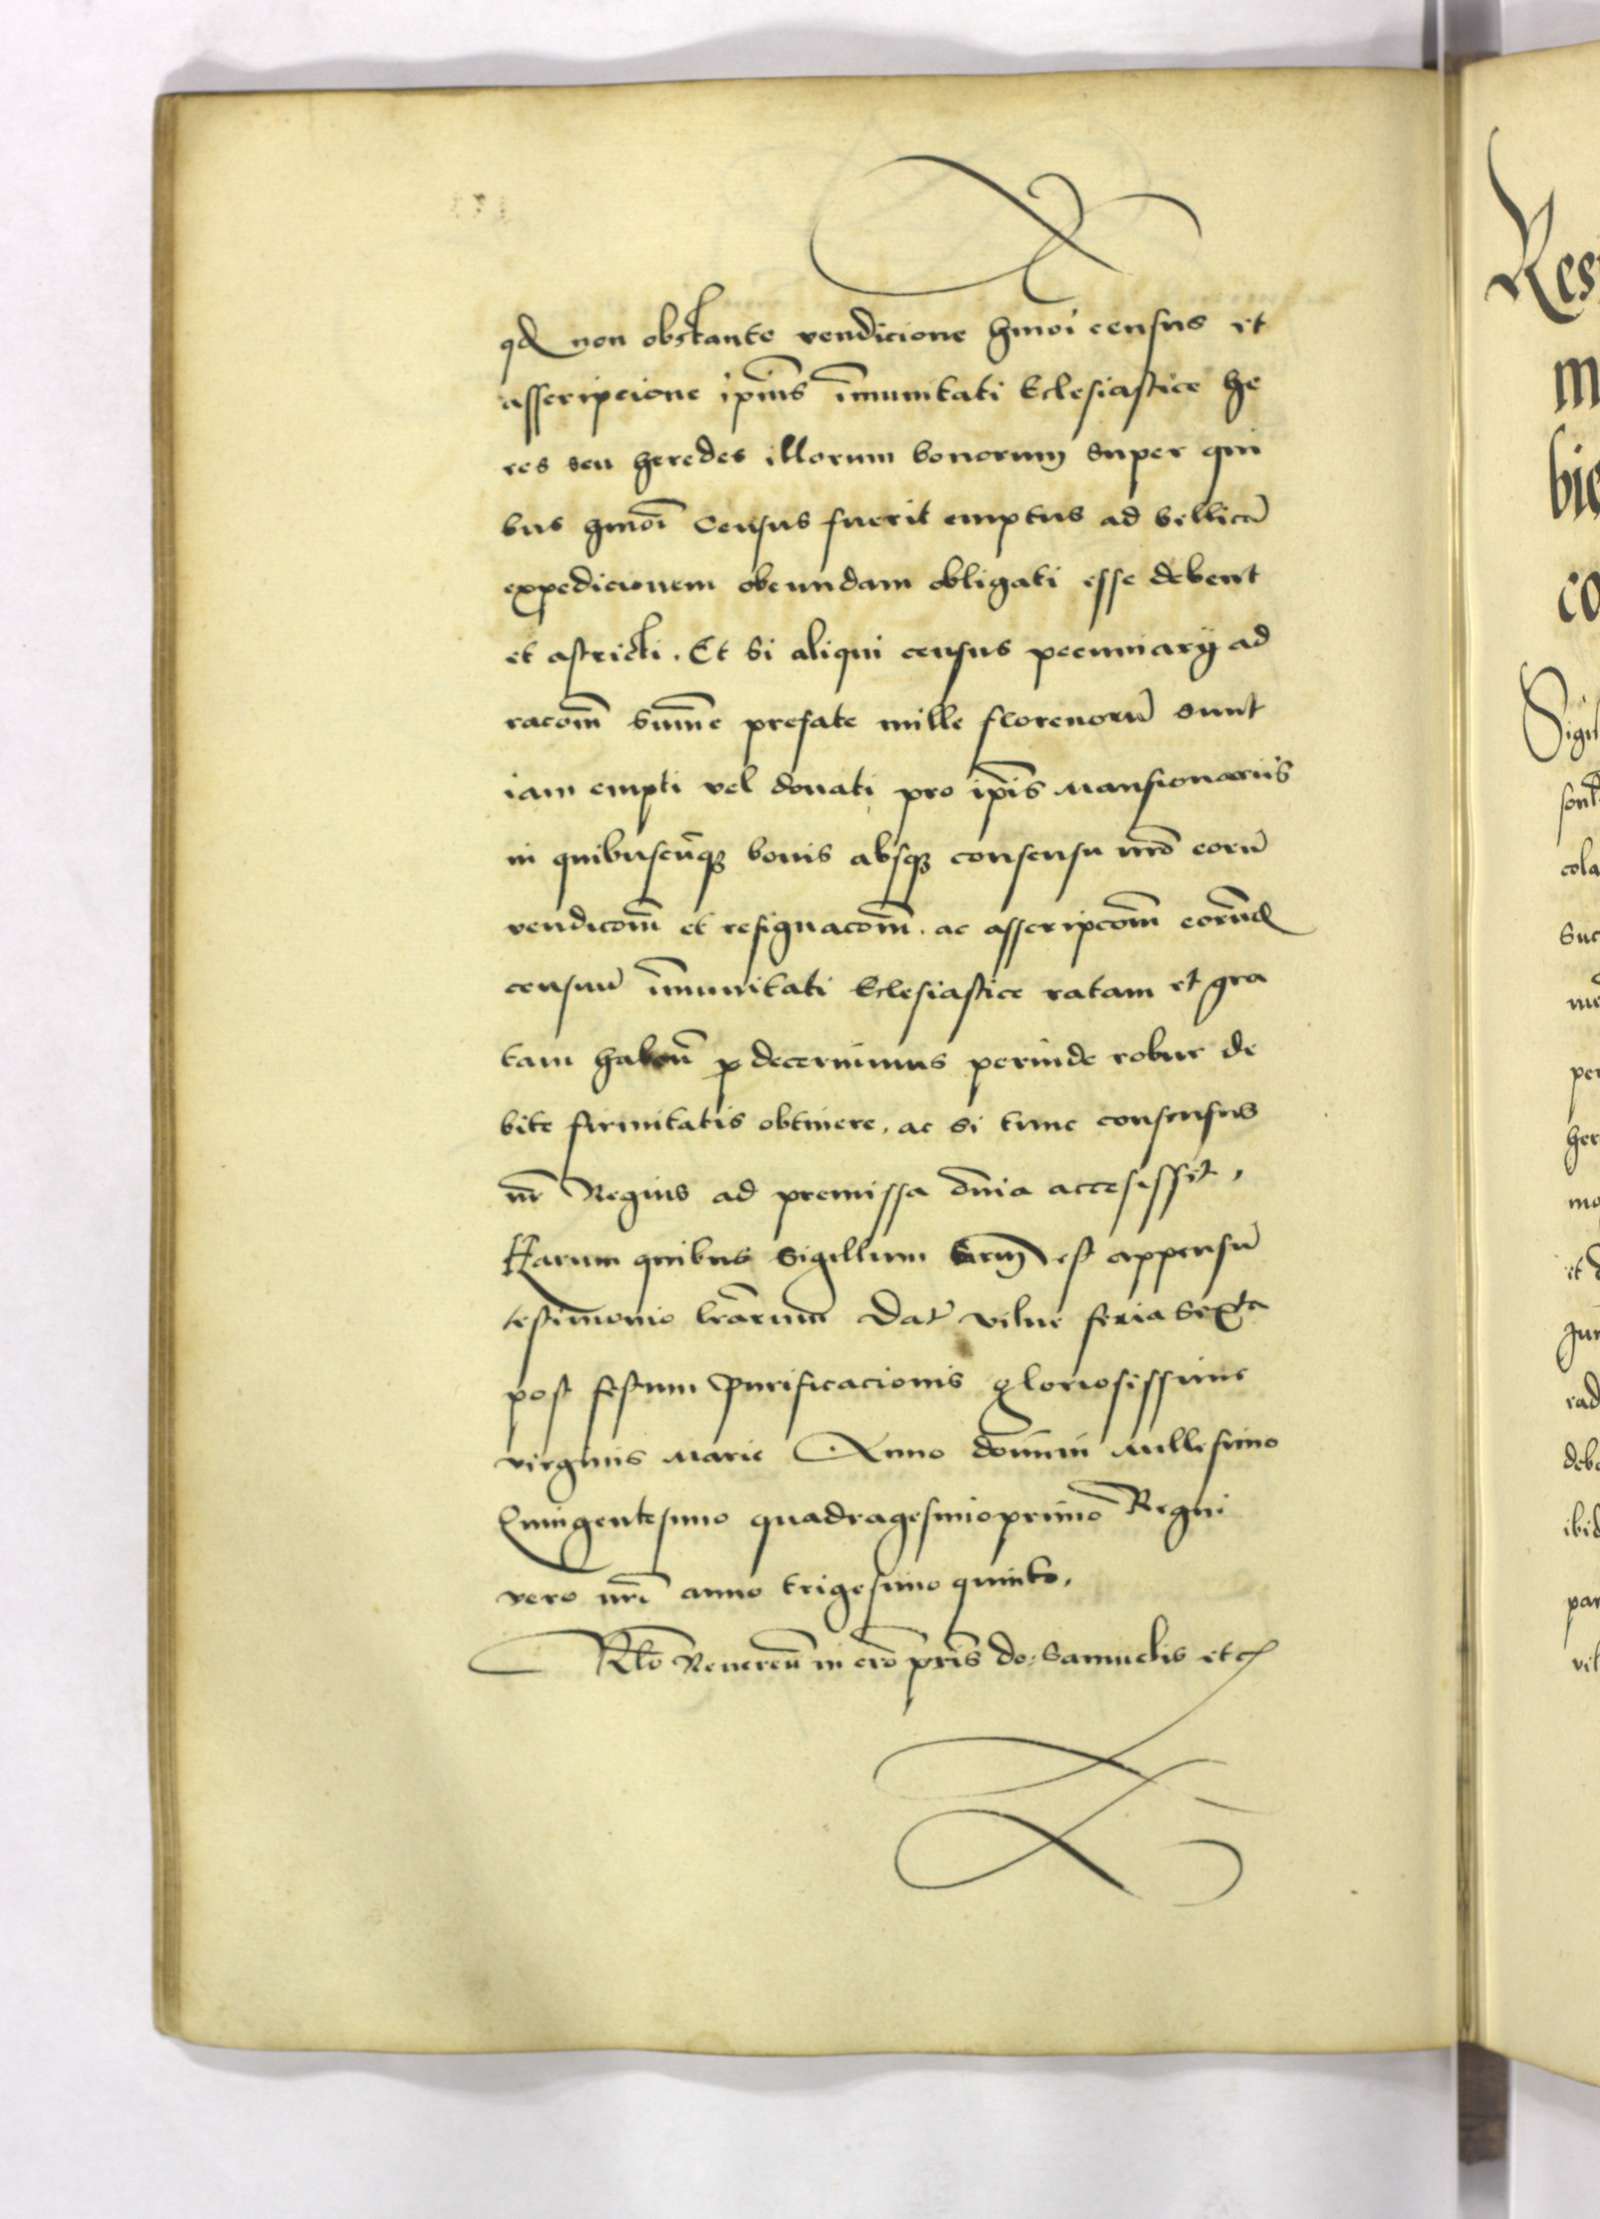 qd non obstante vendicione hmoi census et
asscripcione ipius īmunitati Eclesiastice he
res seu heredes illorum bonorum super qui
bus hmoi Census fuerit emptus ad bellicā
expedicionem obeundam obligati esse debent
et astricti. Et si aliqui census pecuniarÿ ad
racom̄ sum̄e prefate mille florenorū sunt
iam empti vel donati pro ip̄is Mansionariis
in quibuscūqz bonis absqz consensu nr̄o eorū
vendicom̄ et resignacom̄. ac asscripcom̄ eorūd
censuū īmunitati Eclesiastice ratam et gra
tam haben̄ decernimus perinde robur de
bite firmitatis obtinere. ac si tunc consensus
nr̄ Regius ad premissa om̄ia accesissit,
Harum quibus Sigillum est appensū
testimonio lr̄arum Dat Vilne feria sexta
post festum Purificacionis gloriosissime
virginis Marie Anno domini Millesimo
Quingentesimo quadragesimoprimo Regni
vero nr̄i anno trigesimo quinto,
Rlō Reueren̄ in cr̄o pr̄is do: Samuelis etc
Res
m
bie
co
Sigis
colla
Suc
per
her
mo
et
Jur
rad
debe
ibid
par
vil